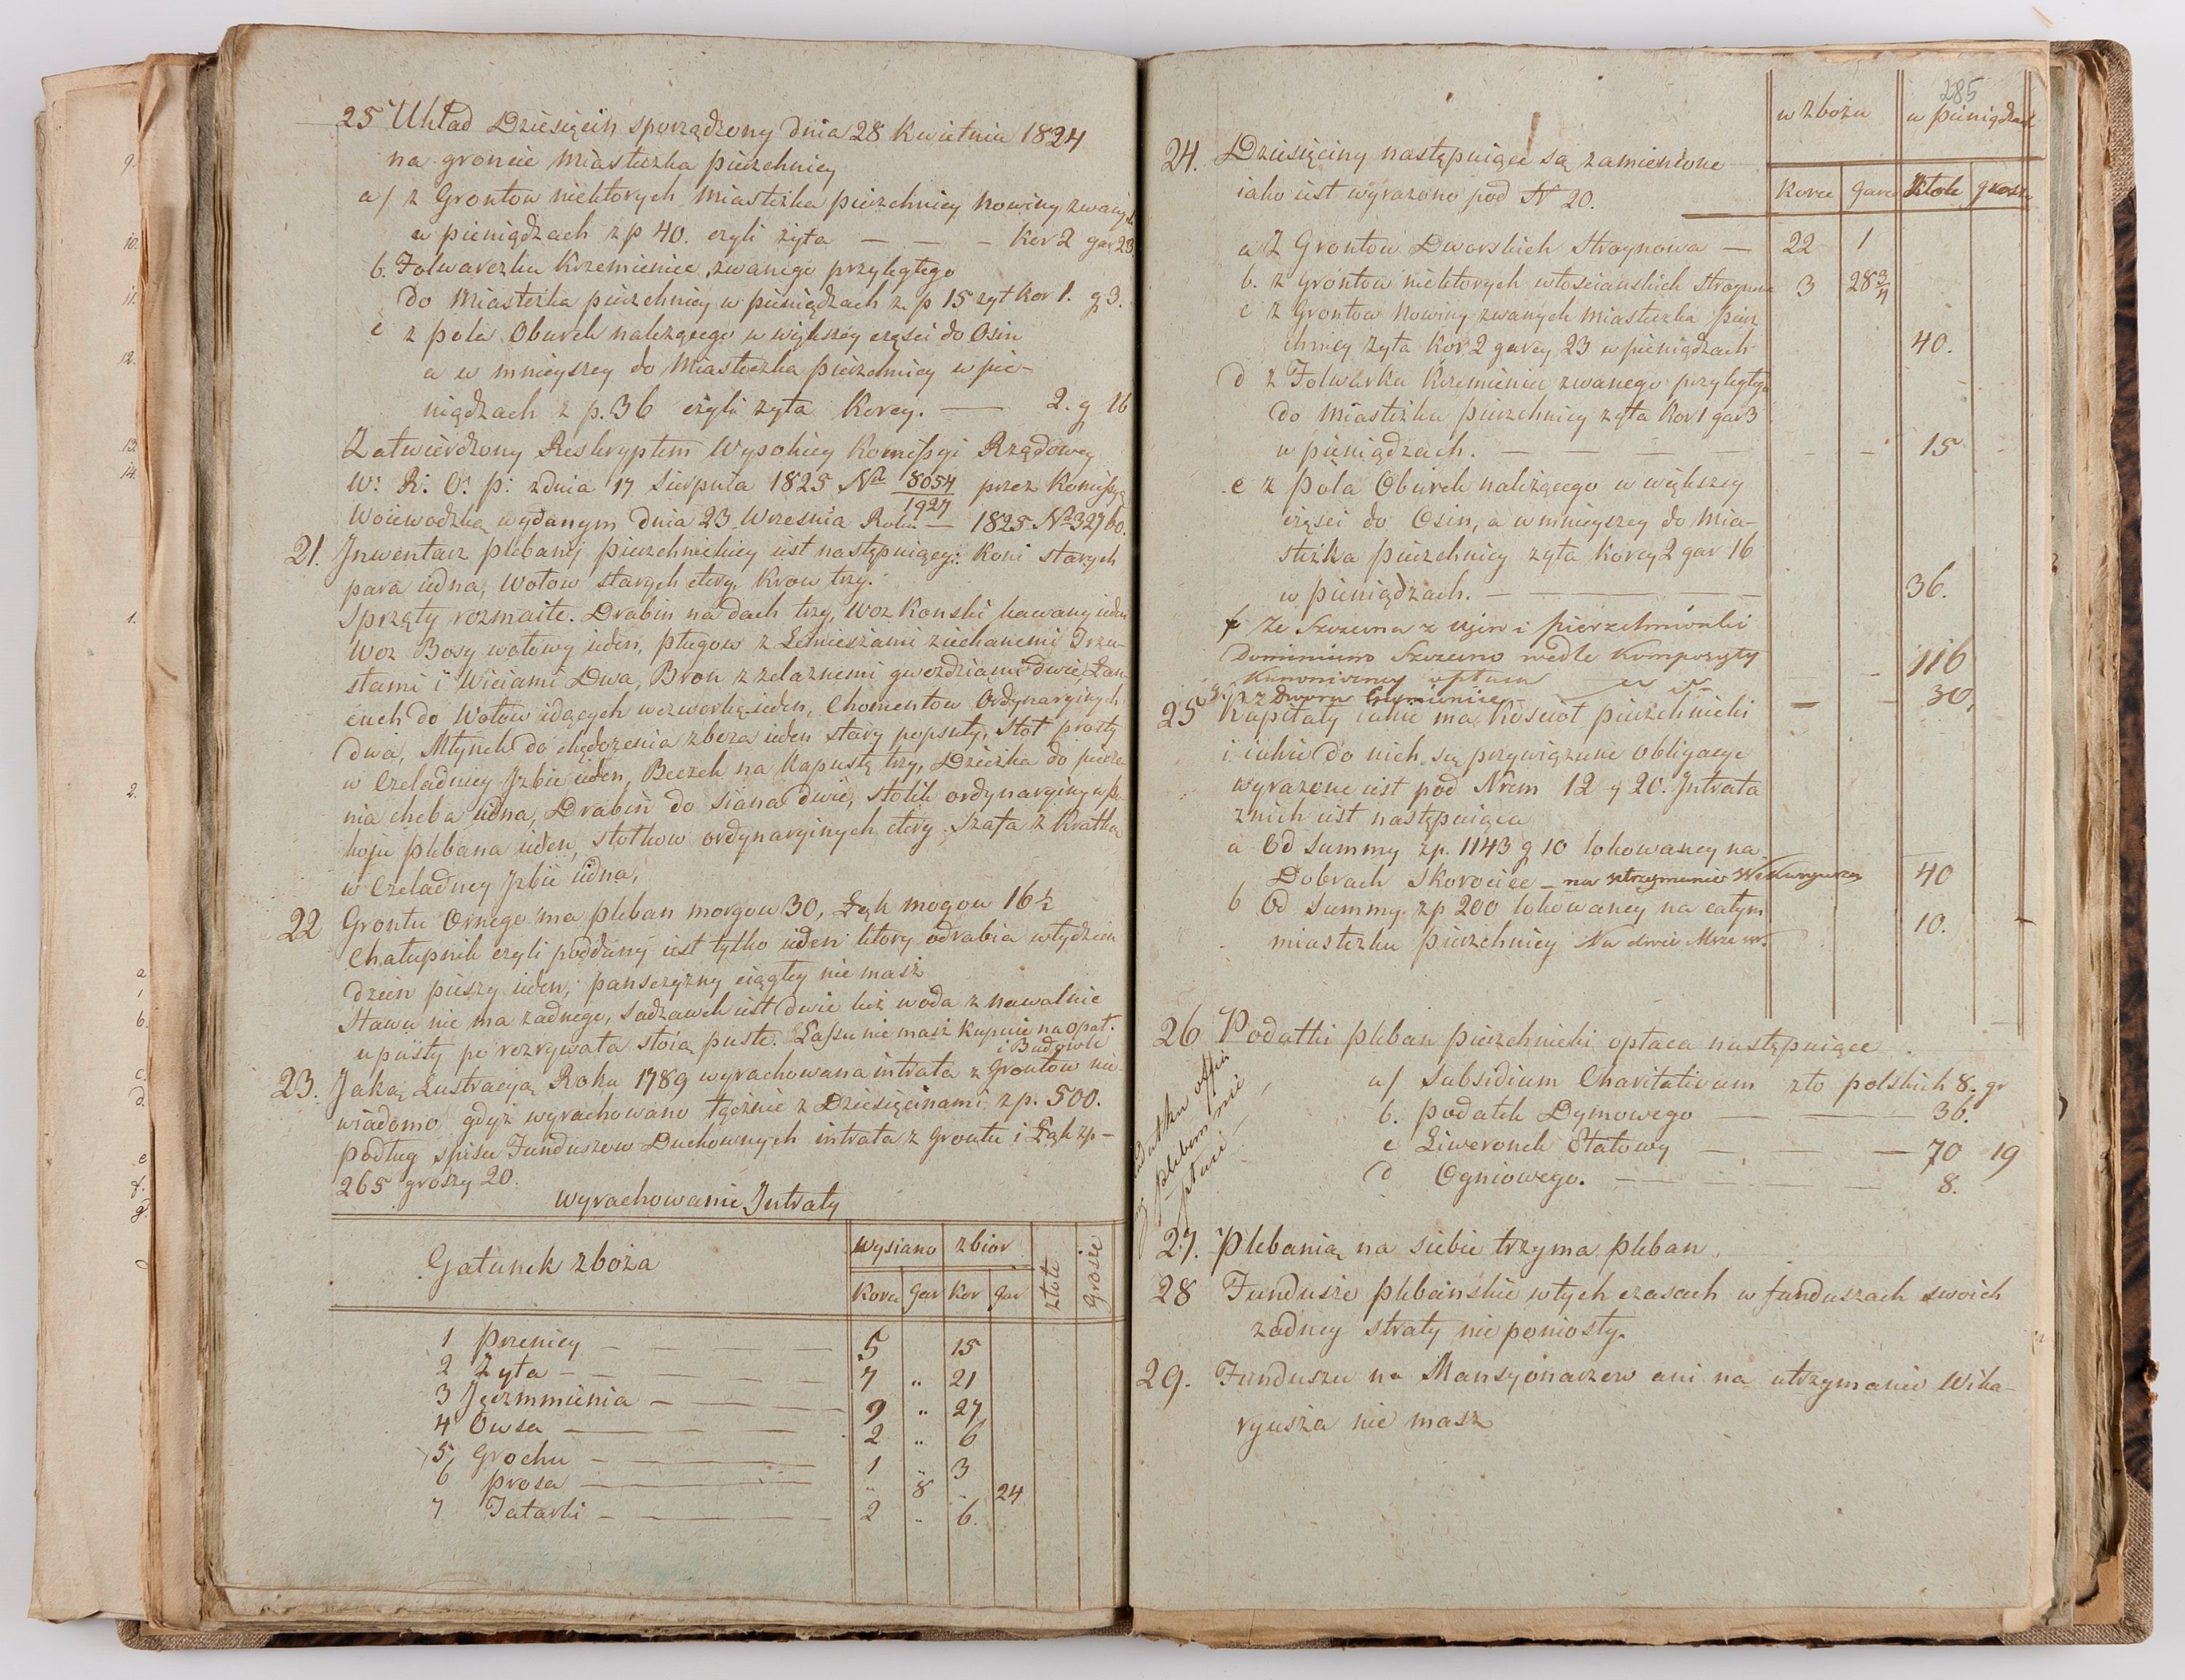 25 Układ Dziesięcin sporządzony dnia 28 Kwietnia 1824
na groncie Miasteczka Pierzchnicy
a/ z Grontow niektorych Miasteczka pierzchnicy Nowiny zwanych
w pieniądzach zp 40. czyli żyta — — — Kor 2 gar 23
b. Folwarczku Krzemieniec zwanego przyległego
do Miasteczka pierzchnicy w pieniądzach z. p 15 żyt kor 1. g 3.
c z pola Oburek należącego w większey części do Osin
a w mnieyszey do Miasteczka pierzchnicy w pie-
niądzach z p. 36 czyli żyta Korcy. — 2. g 16
Zatwierdzony Reskryptem Wysokiey Komissyi Rządowey
W. R. O. P. z dnia 17 Sierpnia 1825 No 8054/1927 przez Komissyą
Woiewodzką wydanym dnia 23 Września Roku — 1825 No 32760.
21. Jnwentarz plebanij pierzchnickiey iest następuiący: Koni starych
para iedna, Wołow starych cztery, Krow trzy.
Sprzęty rozmaite. Drabin na dach trzy, Woz Konski kawany ieden
Woz Bosy wołowy ieden, pługow z Lemieszami
i Wiciami Dwa, Bron z zelaznemi gwozdziami dwie, Łan-
cuch do Wołow idących ieden, Chomentow Ordynaryinych
dwa, Młynek do chędożenia zboza ieden stary popsuty, Stoł prosty
w Czeladney Jzbie ieden, Beczek na kapustę trzy, Dzieżka do piecze
nia chleba iedna, Drabin do siana dwie, stolik ordynaryiny w po-
koju plebana ieden, stołkow ordynaryinych cztery, Szafa z kratką
w Czeladney Jzbie iedna,
22 Grontu Ornego ma pleban morgow 30, Łąk mogow 16½
Chałupnik czyli poddany iest tylko ieden ktory odrabia w tydzien
dzien pieszy ieden, panszczyzny ciągłey nie masz
Stawu nie ma zadnego, sadzawek iest dwie lecz woda z nawalnic
upusty porozrywała stoią puste. Lassu nie masz kupuie na opał.
i Budowle
23. Jaką Lustracyą Roku 1789 wyrachowana intrata z Grontow nie
wiadomo gdyż wyrachowano łącznie z Dziesięcinami zp. 500.
podług spisu Funduszow Duchownych intrata z Grontu i Łąk zp—
265 groszy 20.
Wyrachowanie Jntraty
Gatunek zboża Wysiano zbior złote Grosze
Korce gar kor gar
1 Przenicy — — — — 5 15
2 Żyta — — — — 7 „ 21
3 Jęczmmienia — — — — 9 „ 27
4 Owsa — — — — 2 „ 6
5 Grochu — — — — 1 „ 3
6 prosa — — — „ 8 „ 24
7 Tatarki — — — — 2 „ 6.
285
w zbożu w pieniądzach
Korce garce złote grosze
24. Dziesięciny następuiące są zamienione
iako iest wyrażono pod N 20.
a Z Grontow Dworskich Stroynowa — 22 1
b. z Grontow niektorych włosciańskich Stroynowa 3 28¾
c z Grontow Nowiny zwanych Miasteczka pierz
chnicy żyta kor 2 garcy 23 w pieniądzach 40.
d z Folwarku Krzemieniec zwanego przyległego
do Miasteczku pierzchnicy żyta Kor 1 gar 3
w pieniądzach. — — — — 15
e z Pola Oburek należącego w większey
części do Osin, a w mnieyszey do Mia-
steczka pierzchnicy żyta korcy 2 gar 16
w pieniądzach. — — — 36.
f Ze Szczecna z Ujen i Pierzchnianki
Dominium Szczecno wedle Kompozyty
Kanoniczney opłaca — 116
g. z Dworu Gumienice — — 30,
25 Kapitały iakie ma Kościoł pierzchnicki
i iakie do nich są przywiązane Obligacye
wyrażone iest pod Nrem 12 y 20. Jntrata
z nich iest następuiąca
a Od Summy zp. 1143 g 10 lokowaney na
Dobrach Skorocice – na utrzymanie Wikaryusza 40
b Od Summy zp 200 lokowaney na całym
miasteczku pierzchnicy Na dwie Msze 10.
26 Podatki pleban pierzchnicki opłaca następuiące
a/ Subsidium Charitativum zło polskich 8. gr
b. podatek Dymowego — — 36.
c Liweronek Stałowy — — — 70 19
d Ogniowego. — — — 8.
27. Plebanią na siebie trzyma pleban.
28 Fundusze plebańskie w tych czasach w funduszach swoich
zadney straty nie poniosły.
29. Funduszu na Mansyonarzow ani na utrzymanie Wika-
ryusza nie masz